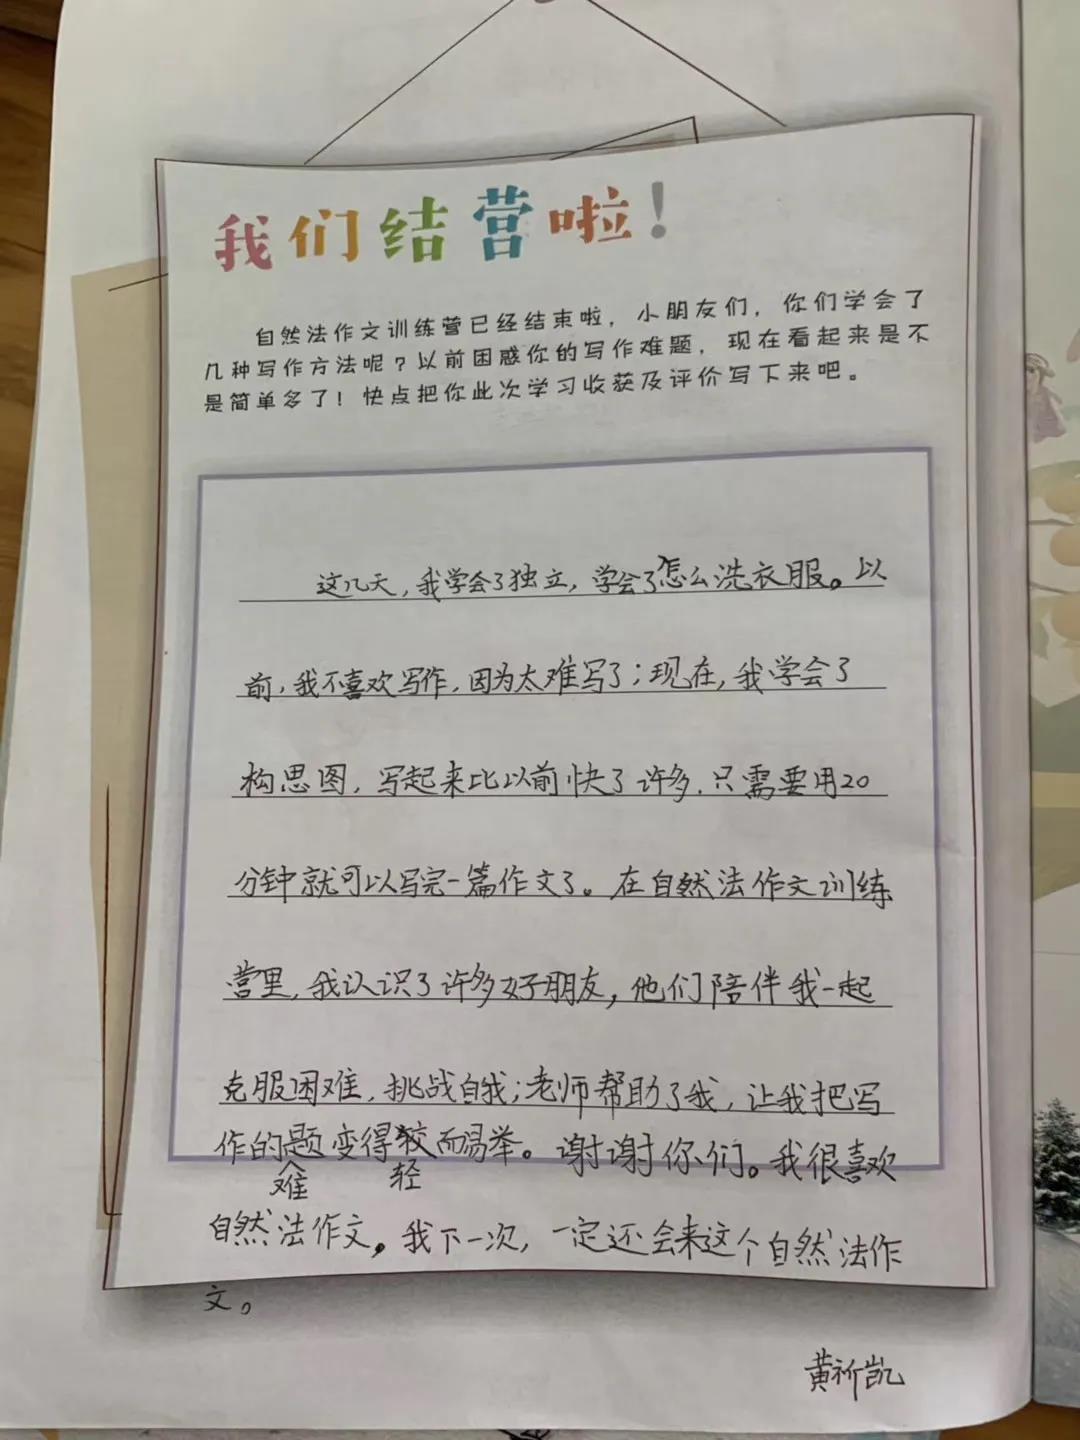 我们结营啦！
自然法作文训练营已经结束啦，小朋友们，你们学会了
几种写作方法呢？以前困惑你的写作难题，现在看起来是不
是简单多了！快点把你此次学习收获及评价写下来吧。
这几天，我学会了独立，学会了怎么洗衣服。以
前，我不喜欢写作，因为太难写了；现在，我学会了
构思图，写起来比以前快了许多，只需要用20
分钟就可以写完一篇作文了。在自然法作文训练
营里，我认识了许多好朋友，他们陪伴我一起
克服困难，挑战自我；老师帮助了我，让我把写
作的题变得较而易举。谢谢你们。我很喜欢
难 轻
自然法作文。我下一次，一定还会来这个自然法作
文。
黄祈凯